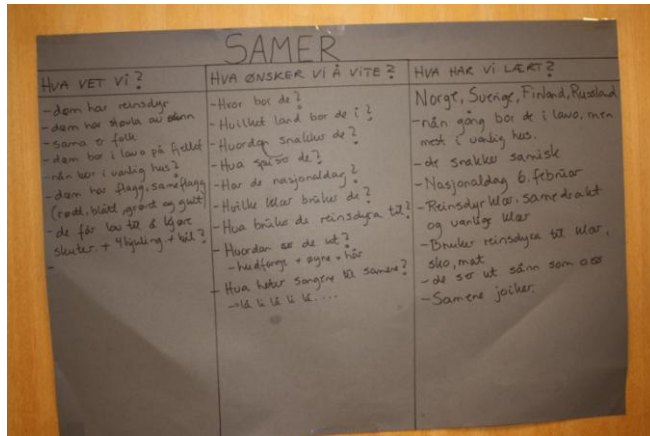 SAMER
HVA VET VI?
- dem har reinsdyr
- dem har skoula av skinn
- sama e folk
- dem bor i lavo på fjellet
nån bor i vanlig hus?
- dem har flagg, sameflagg
(rødt, blått, grønt og gult)
- de får lov til å kjøre
skuter. + 4hjuling + bil?
-
HVA ØNSKER VI Å VITE?
- Hvor bor de?
- Hvilket land bor de i?
- Huordan snakker de?
- Hva spiser de?
- Har de nasjonaldag?
- Hvilke klær bruker de?
- Hva bruke de reinsdyra til?
- Huordan ser de ut?
- hudfarge + øyne + hår
- Hva heter sangene til samene?
→ lå li lå li lå....
HVA HAR VI LÆRT?
Norge, Sverige, Finland, Russland
- nån gång bor de i lavo, men
mest i vanlig hus.
- de snakker samisk
- Nasjonaldag 6. februar
- Reinsdyrklær, samedrakt
og vanlige klær
- Bruker reinsdyra til klær,
sko, mat
- de ser ut sånn som oss
- Samene joiker.